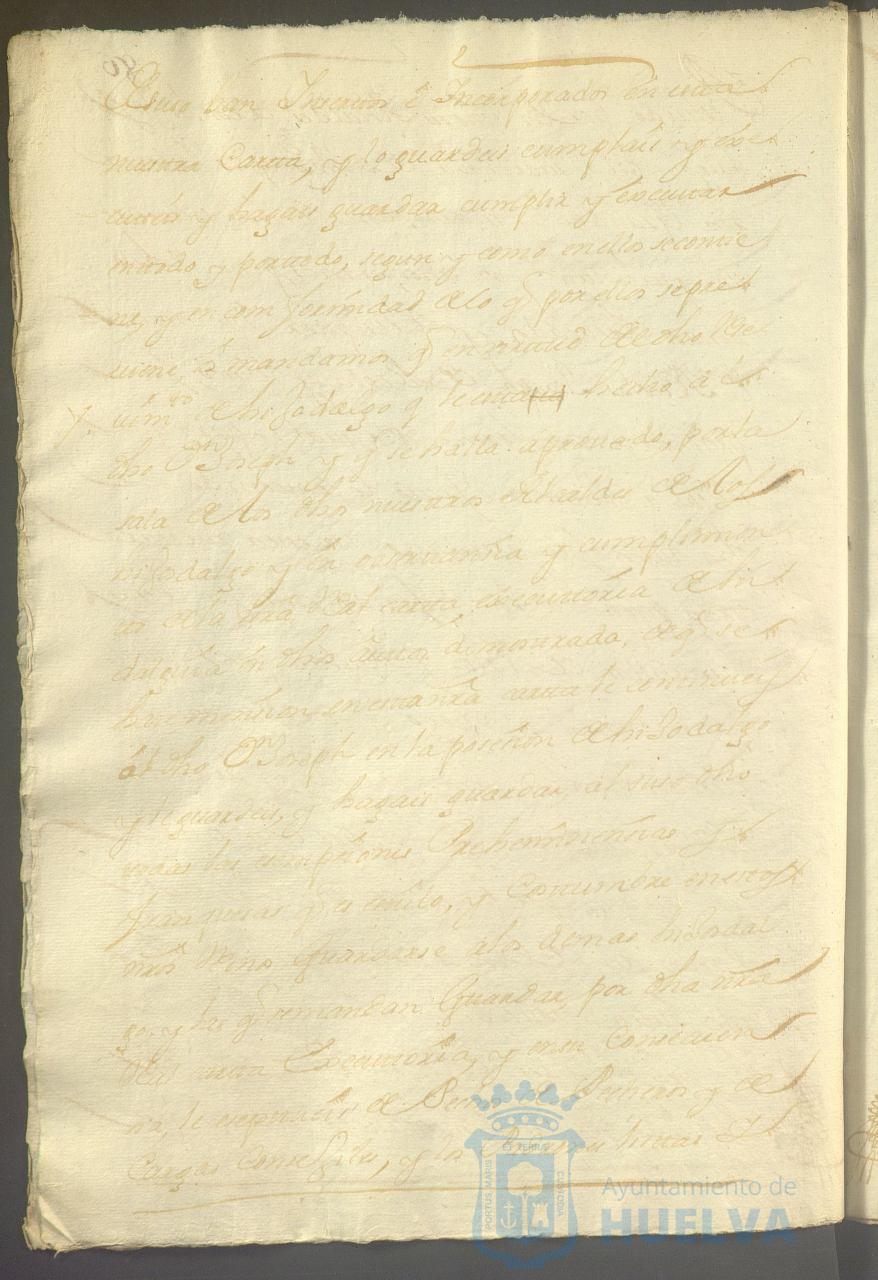 De suso ban Insertos é Incorporados en esta
nuestra Carta, y lo guardeis cumplais y exe
cuteis y hagais guardar cumplir y executar
en todo y por todo, segun y como en ellos se contie
ne, y en comformidad de lo q por ellos se pre
viene, mandamos q en virtud de dho Re
civimto de hijodalgo q le está hecho á el
dho Dn Joseph y q se halla aprovado, por la
sala de los dhos nuestros Alcaldes de los
hijosdalgo y en observancia y cumplimien
to de la nra Real carta executoria de hi
dalguia en dhos Autos demonstrada, de q se
hace mencion en esta nra carta le continueis
ál dho Dn Joseph en la posecion de hijodalgo
y le guardeis, y hagais guardar al suso dho
todas las esempciones Prehemínencias y
franquesas q es estilo, y Costumbre en estos
nros Reinos Guardarse a los demas hijosdal
go, y las q se mandan Guardar, por dha nra
Real carta Executoria, y en su Consecuen
cia, le exceptueis de Pechos de Pecheros y de
Cargas Consegiles, y los
PORTUS MARIS
ET TERRE
CUSTODIA
Ayuntamiento de
HUELVA